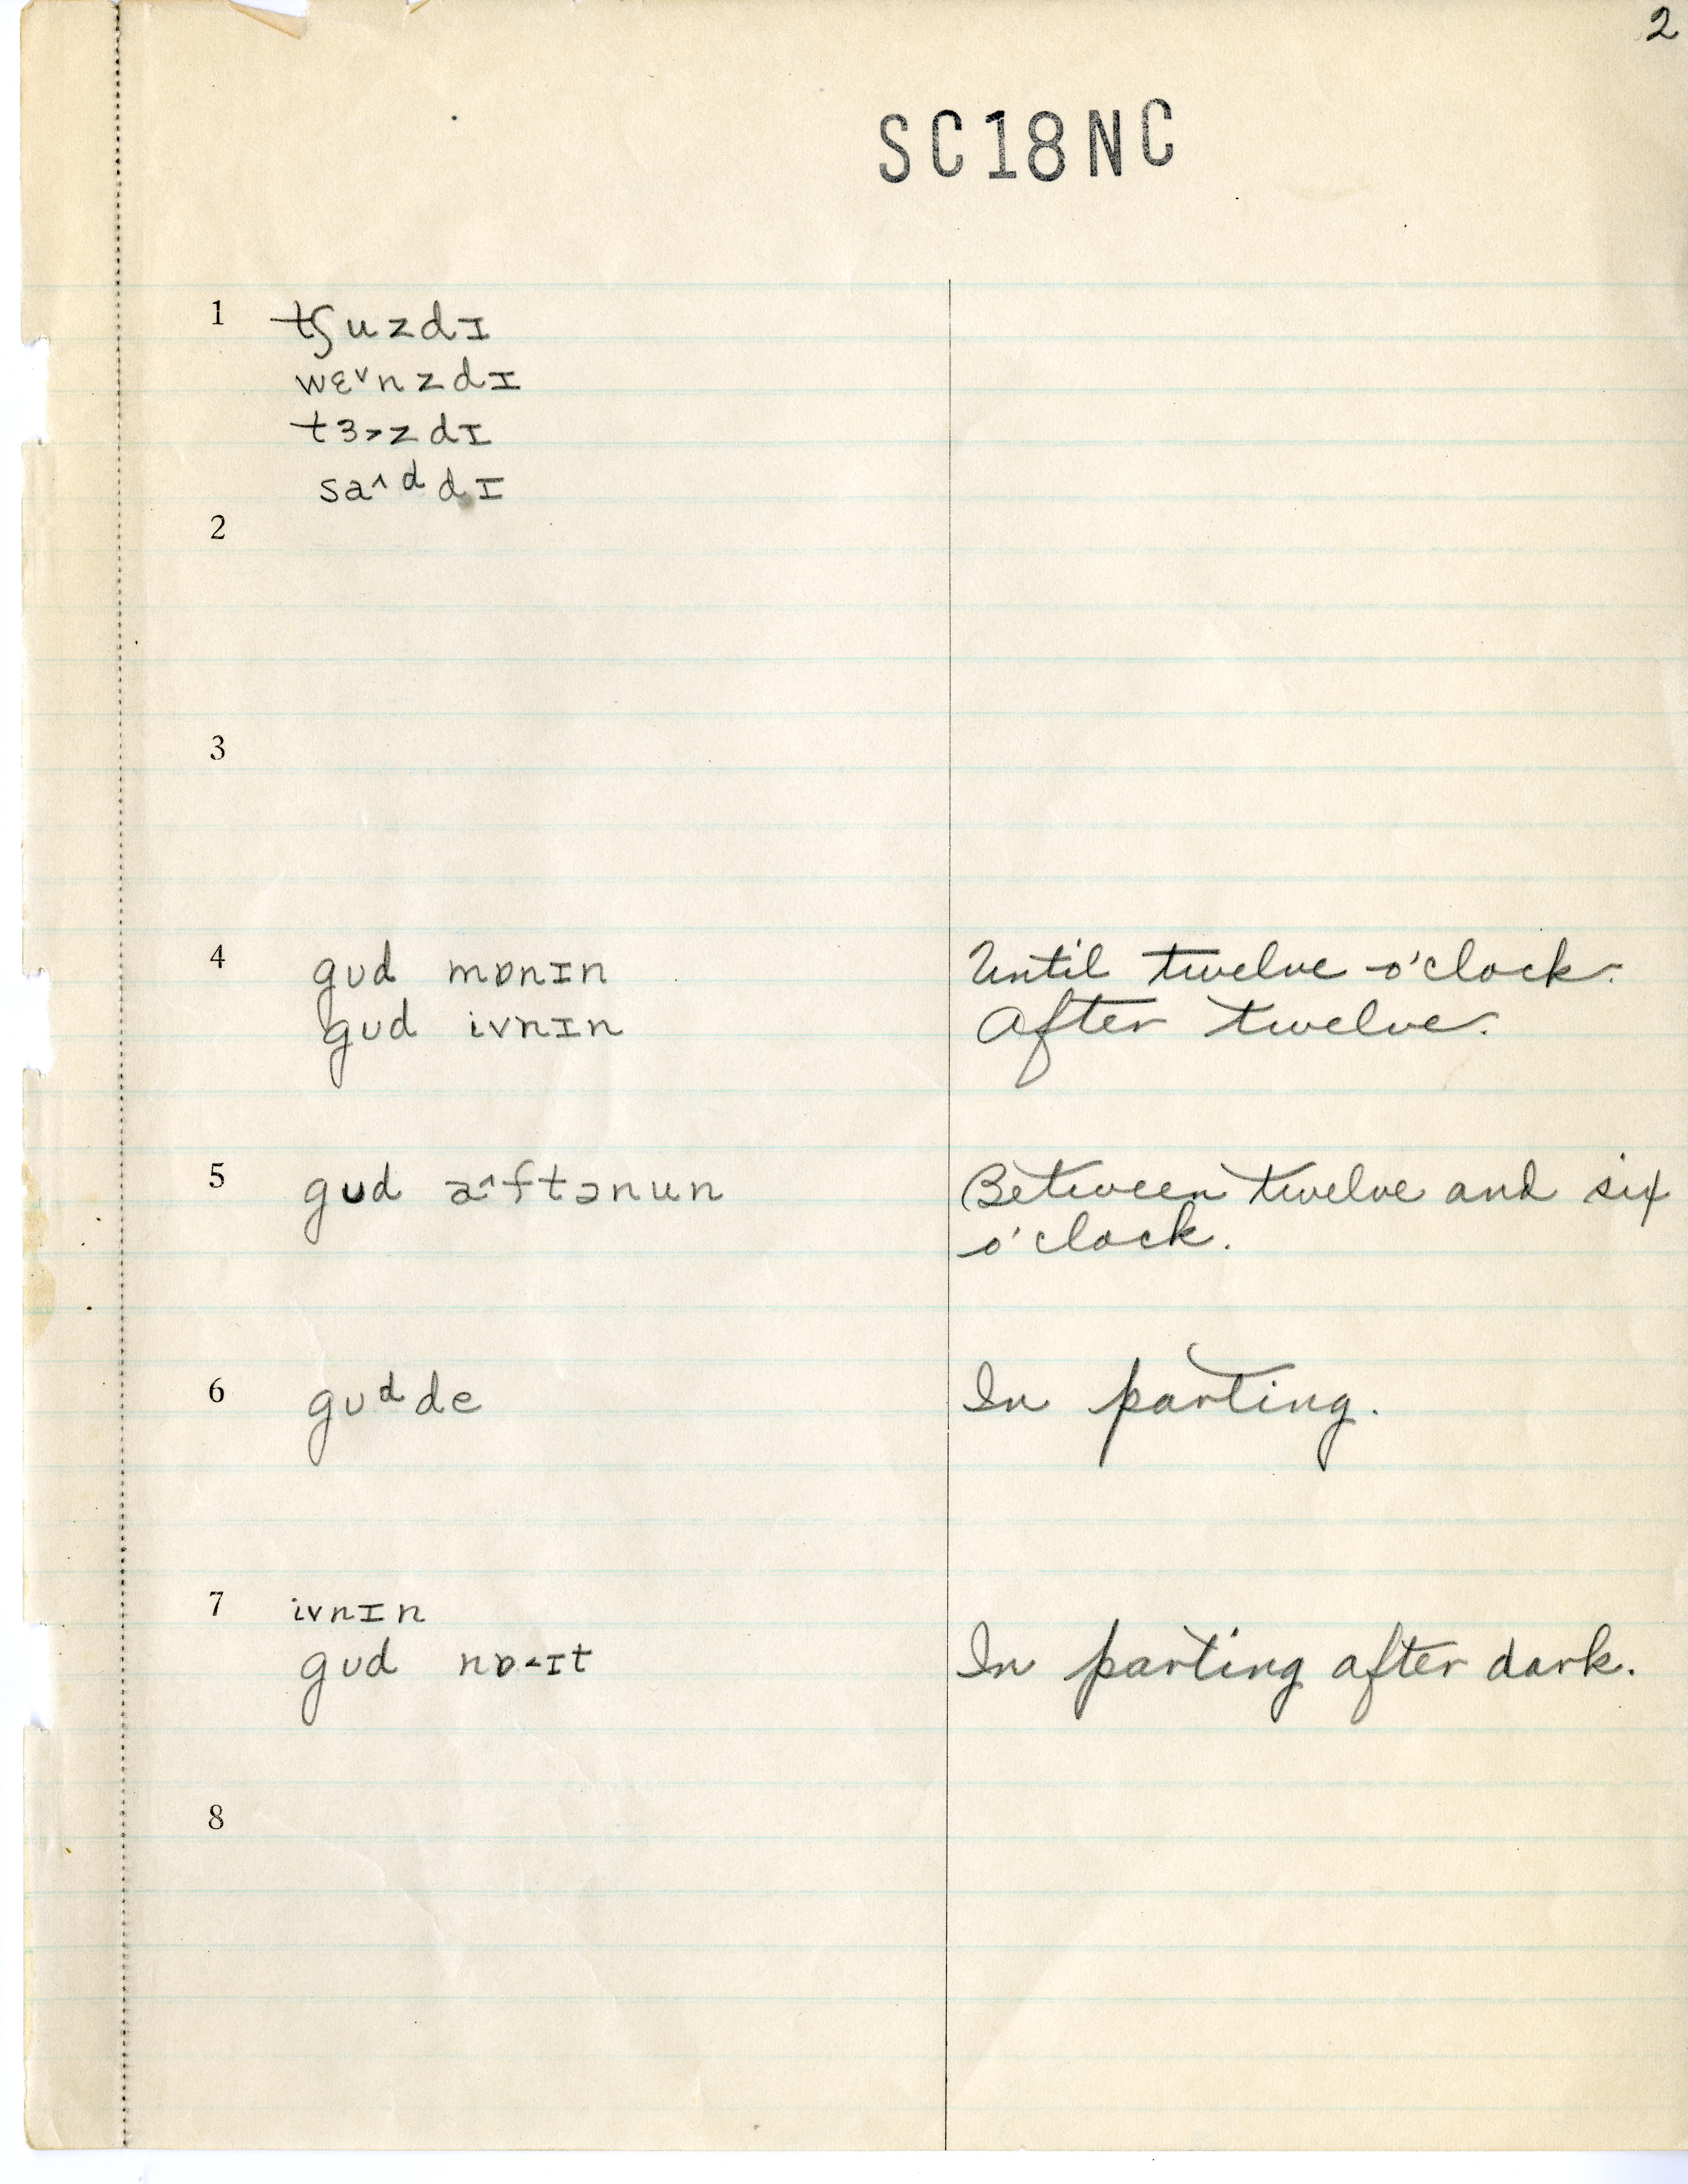 2
SC18NC
1 tʃuzdɪ
wɛ˅nzdɪ
tɜ˃zdɪ
sa˄ᵈdɪ
2
3
4 gʊd mɒnɪn Until twelve o'clock.
gʊd ivnɪn After twelve.
5 gʊd a˄ftənun Between twelve and six
o'clock.
6 gʊᵈde In parting.
7 ivnɪn
gʊd nɒ˂ɪt In parting after dark.
8